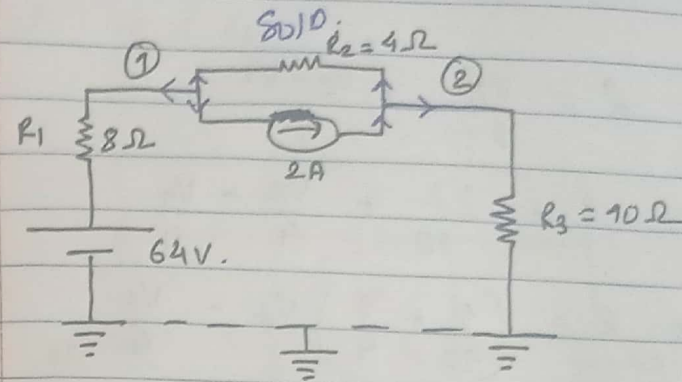 Solp.
R₂ = 4Ω
①
②
R₁ 8Ω
2A
R₃ = 10Ω
64V.